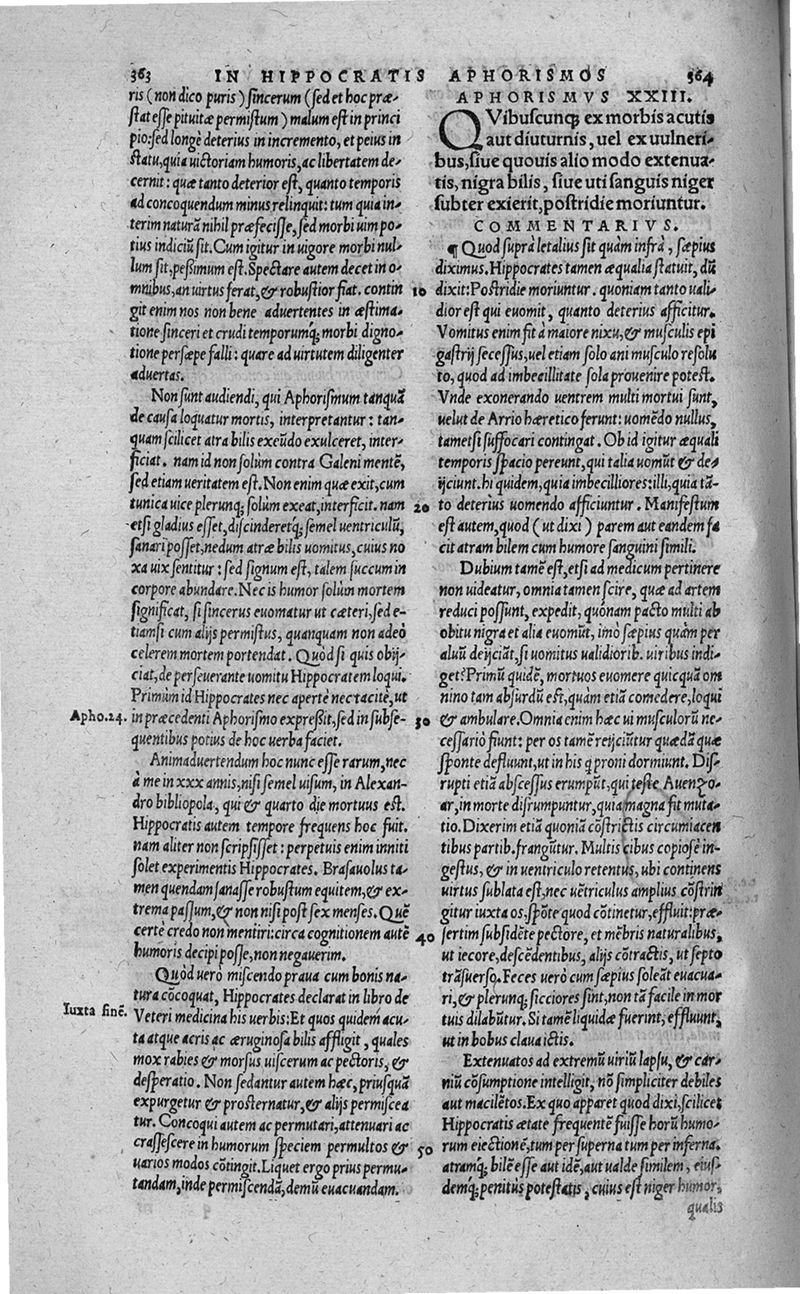 363 IN HIPPOCRATIS APHORISMOS 364
ris (non dico puris) sincerum (sed et hoc præ-
stat esse pituitæ permistum) malum est in princi
pio: sed longè deterius in incremento, et peius in
statu, quia uictoriam humoris, ac libertatem de-
cernit: quæ tanto deterior est, quanto temporis
ad concoquendum minus relinquit: tum quia in-
terim naturã nihil præfecisse, sed morbi uim po-
tius indiciũ sit. Cum igitur in uigore morbi nul-
lum sit, peßimum est. Spectare autem decet in o-
mnibus, an uirtus ferat, & robustior fiat. contin
git enim nos non bene aduertentes in æstima-
tione sinceri et crudi temporumq́; morbi digno-
tione persæpe falli: quare ad uirtutem diligenter
aduertas.
Non sunt audiendi, qui Aphorismum tanquã
de causa loquatur mortis, interpretantur: tan-
quam scilicet atra bilis exeũdo exulceret, inter-
ficiat. nam id non solùm contra Galeni mentẽ,
sed etiam ueritatem est. Non enim quæ exit, cum
tunica uice plerunq; solùm exeat, interficit. nam
etsi gladius esset, discinderetq́; semel uentriculũ,
sanari posset, nedum atræ bilis uomitus, cuius no
xa uix sentitur: sed signum est, talem succum in
corpore abundare. Nec is humor solùm mortem
significat, si sincerus euomatur ut cæteri, sed e-
tiamsi cum alijs permistus, quanquam non adeò
celerem mortem portendat. Quòd si quis obij-
ciat, de perseuerante uomitu Hippocratem loqui.
Primùm id Hippocrates nec apertè nec tacitè, ut
Apho.24. in præcedenti Aphorismo expreßit, sed in subse-
quentibus potius de hoc uerba faciet.
Animaduertendum hoc nunc esse rarum, nec
à me in xxx annis, nisi semel uisum, in Alexan-
dro bibliopola, qui & quarto die mortuus est.
Hippocratis autem tempore frequens hoc fuit.
nam aliter non scripsisset: perpetuis enim inniti
solet experimentis Hippocrates. Brasauolus ta-
men quendam sanasse robustum equitem, & ex-
trema passum, & non nisi post sex menses. Quẽ
certè credo non mentiri: circa cognitionem autẽ
humoris decipi posse, non negauerim.
Quòd uerò miscendo praua cum bonis na-
tura cõcoquat, Hippocrates declarat in libro de
Iuxta finẽ. Veteri medicina his uerbis: Et quos quidem acu-
ta atque acris ac æruginosa bilis affligit, quales
mox rabies & morsus uiscerum ac pectoris, &
desperatio. Non sedantur autem hæc, priusquã
expurgetur & prosternatur, & alijs permiscea
tur. Concoqui autem ac permutari, attenuari ac
crassescere in humorum speciem permultos &
uarios modos cõtingit. Liquet ergo prius permu-
tandam, inde permiscendã, demũ euacuandam.
APHORISMVS XXIII.
QVibuscunq; ex morbis acutis
aut diuturnis, uel ex uulneri-
bus, siue quouis alio modo extenua-
tis, nigra bilis, siue uti sanguis niger
subter exierit, postridie moriuntur.
COMMENTARIVS.
¶ Quod suprà letalius sit quàm infrà, sæpius
diximus. Hippocrates tamen æqualia statuit, dũ
10 dixit: Postridie moriuntur. quoniam tanto uali-
dior est qui euomit, quanto deterius afficitur.
Vomitus enim fit à maiore nixu, & musculis epi
gastrij secessus, uel etiam solo ani musculo resolu
to, quod ad imbecillitate sola prouenire potest.
Vnde exonerando uentrem multi mortui sunt,
uelut de Arrio hæretico ferunt: uomẽdo nullus,
tametsi suffocari contingat. Ob id igitur æquali
temporis spacio pereunt, qui talia uomũt & de-
ijciunt. hi quidem, quia imbecilliores: illi, quia tã-
20 to deterius uomendo afficiuntur. Manifestum
est autem, quod (ut dixi) parem aut eandem fa
cit atram bilem cum humore sanguini simili.
Dubium tamẽ est, etsi ad medicum pertinere
non uideatur, omnia tamen scire, quæ ad artem
reduci possunt, expedit, quónam pacto multi ab
obitu nigra et alia euomũt, imò sæpius quàm per
aluũ deijciãt, si uomitus ualidiorib. uiribus indi-
get? Primũ quidẽ, mortuos euomere quicquã om
nino tam absurdũ est, quàm etiã comedere, loqui
30 & ambulare. Omnia enim hæc ui musculorũ ne-
cessariò fiunt: per os tamẽ reijciũtur quædã quæ
sponte defluunt, ut in his q̃ proni dormiunt. Dis-
rupti etiã abscessus erumpũt, qui teste Auenzo-
ar, in morte disrumpuntur, quia magna fit muta-
tio. Dixerim etiã quoniã cõstrictis circumiacen
tibus partib. frangũtur. Multis cibus copiosè in-
gestus, & in uentriculo retentus, ubi continens
uirtus sublata est, nec uẽtriculus amplius cõstrin
gitur iuxta os, spõte quod cõtinetur, effluit: præ-
40 sertim subsidẽte pectore, et mẽbris naturalibus,
ut iecore, descẽdentibus, alijs cõtractis, ut septo
trãsuerso. Feces uerò cum sæpius soleãt euacua-
ri, & plerunq; sicciores sint, non tã facile in mor
tuis dilabũtur. Si tamẽ liquidæ fuerint, effluunt,
ut in bobus claua ictis.
Extenuatos ad extremũ uiriũ lapsu, & car-
niũ cõsumptione intelligit, nõ simpliciter debiles
aut macilẽtos. Ex quo apparet quod dixi, scilicet
Hippocratis ætate frequentẽ fuisse horũ humo-
50 rum eiectionẽ, tum per superna tum per inferna.
atramq́; bilẽ esse aut idẽ, aut ualde similem, eius-
demq́; penitus potestatis, cuius est niger humor,
qualis